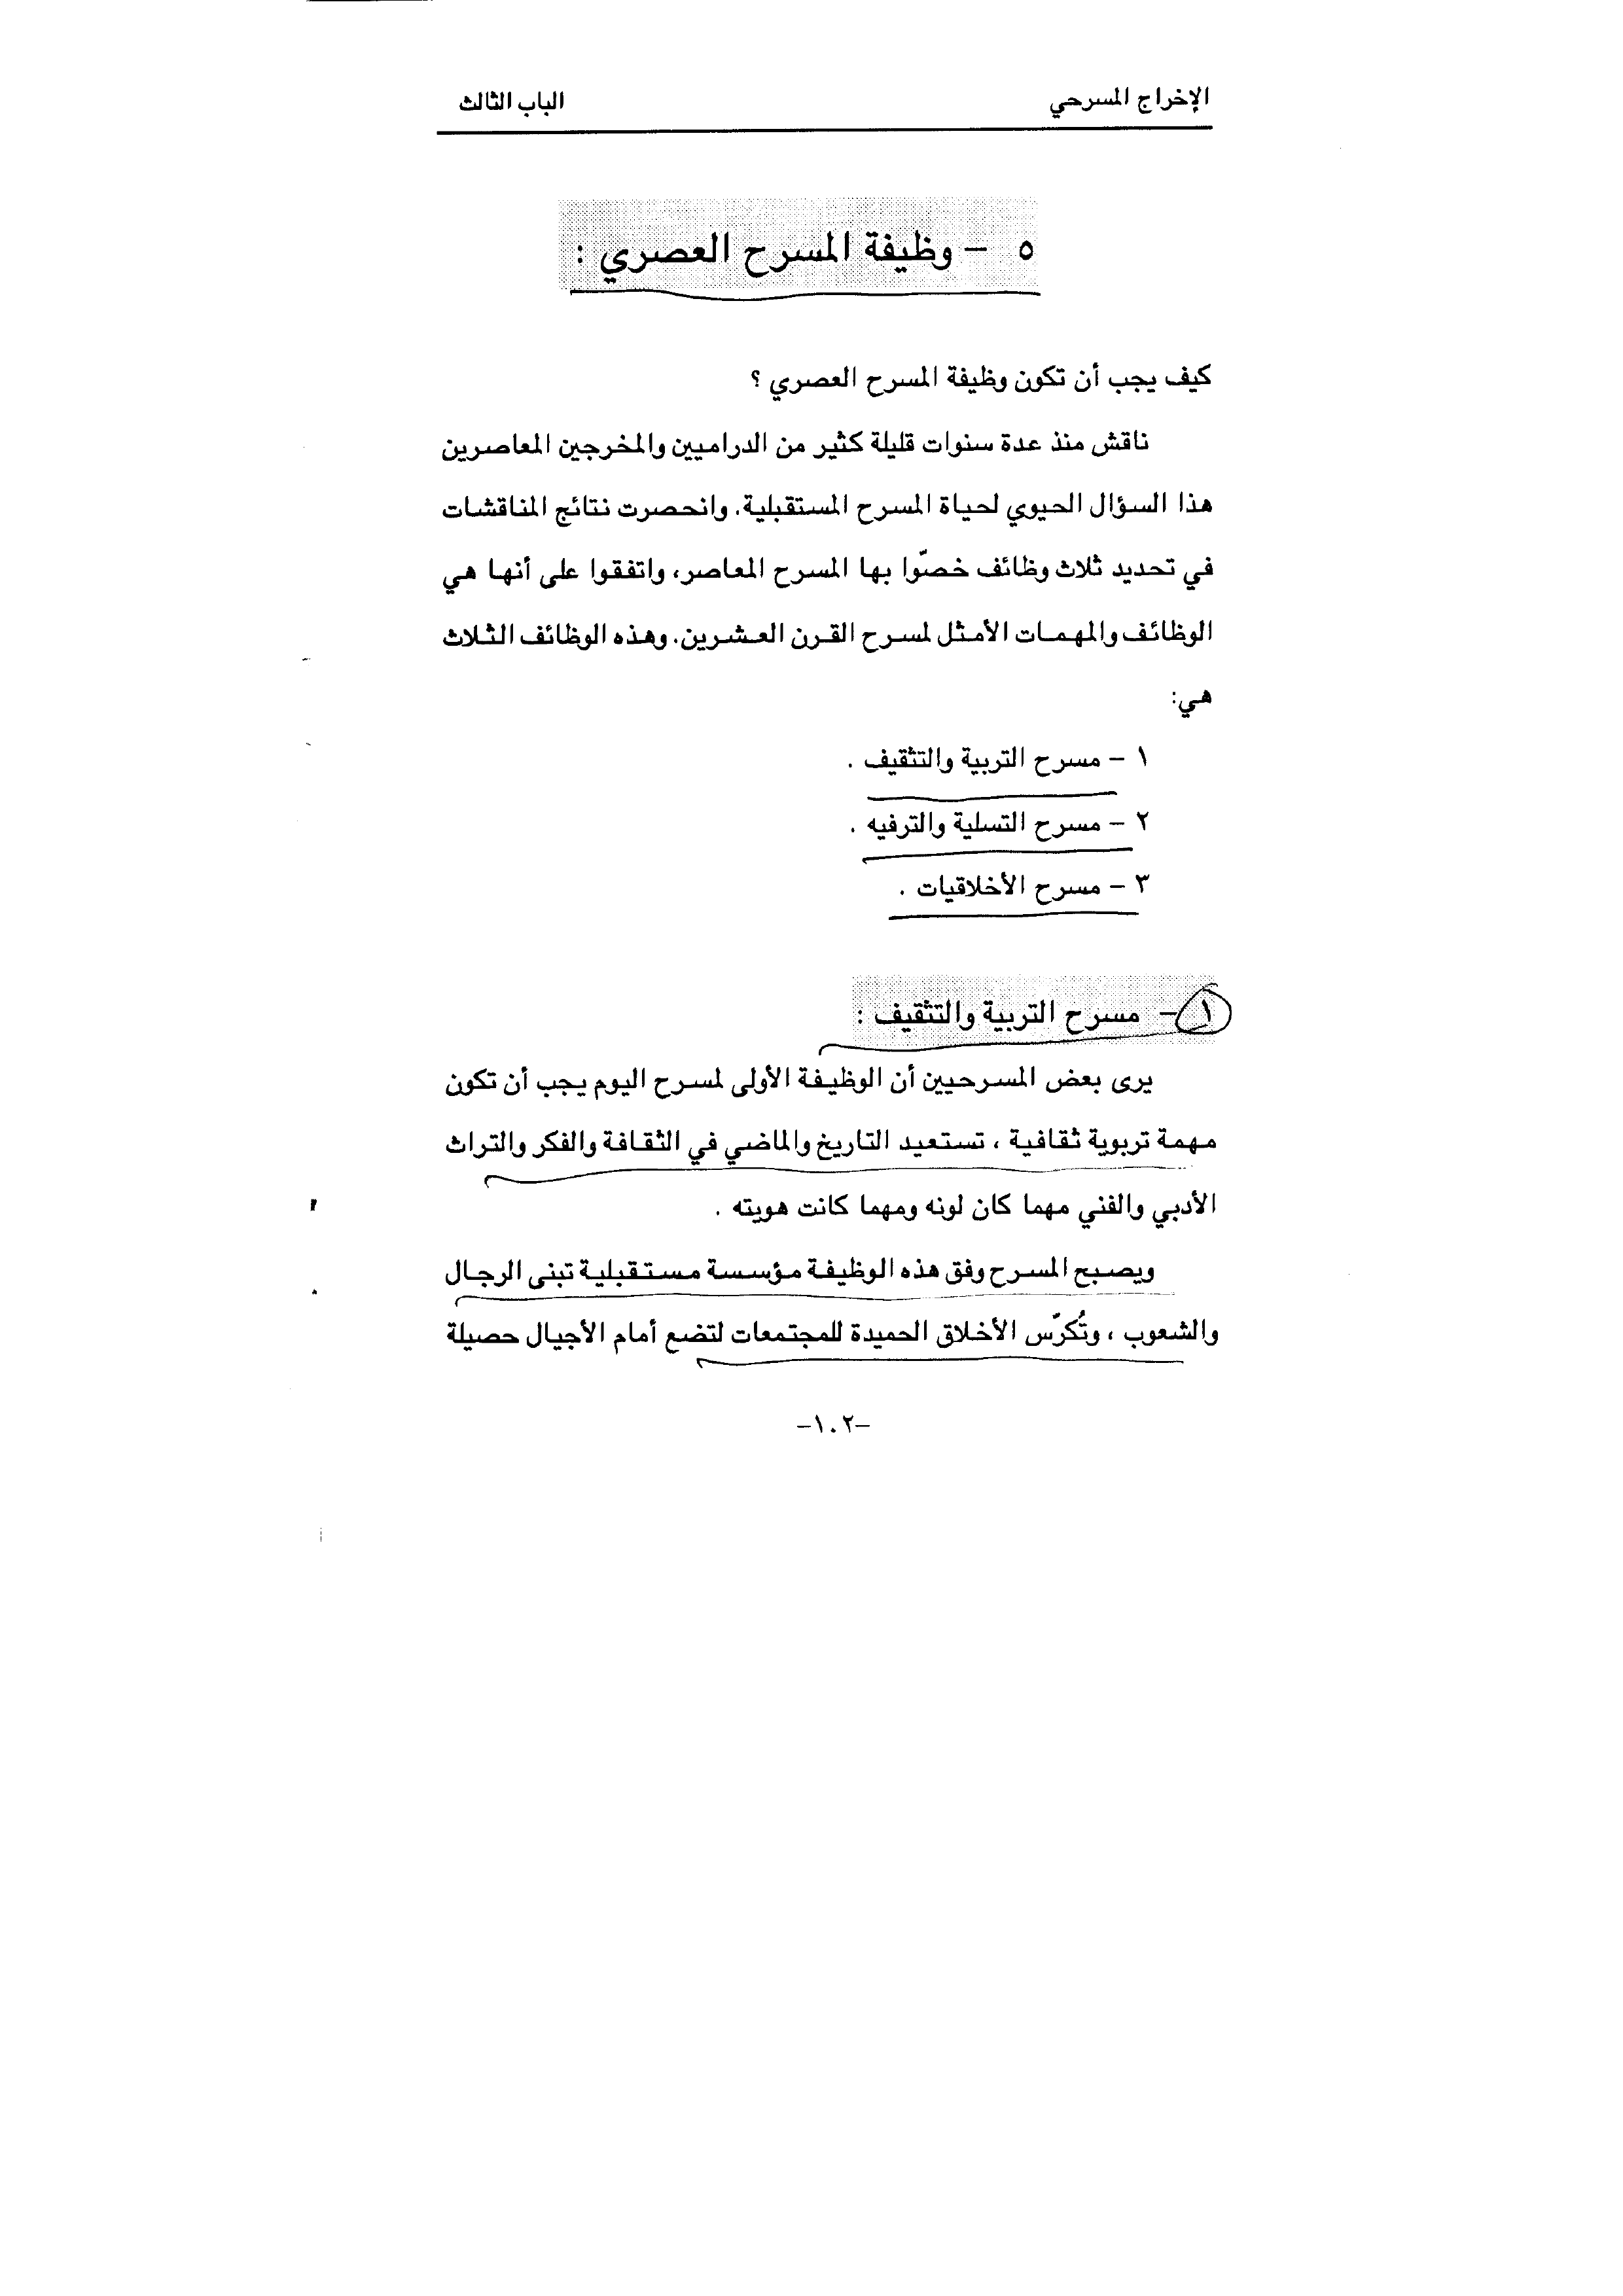 الإخراج المسرحي
الباب الثالث
٥ - وظيفة المسرح العصري :
كيف يجب أن تكون وظيفة المسرح العصري ؟
ناقش منذ عدة سنوات قليلة كثير من الدراميين والمخرجين المعاصرين
هذا السؤال الحيوي لحياة المسرح المستقبلية. وانحصرت نتائج المناقشات
في تحديد ثلاث وظائف خصّوا بها المسرح المعاصر، واتفقوا على أنها هي
الوظائف والمهمات الأمثل لمسرح القرن العشرين. وهذه الوظائف الثلاث
هي:
١ - مسرح التربية والتثقيف .
٢ - مسرح التسلية والترفيه .
٣ - مسرح الأخلاقيات .
١ - مسرح التربية والتثقيف :
يرى بعض المسرحيين أن الوظيفة الأولى لمسرح اليوم يجب أن تكون
مهمة تربوية ثقافية ، تستعيد التاريخ والماضي في الثقافة والفكر والتراث
الأدبي والفني مهما كان لونه ومهما كانت هويته .
ويصبح المسرح وفق هذه الوظيفة مؤسسة مستقبلية تبنى الرجال
والشعوب ، وتُكرّس الأخلاق الحميدة للمجتمعات لتضع أمام الأجيال حصيلة
-١٠٢-